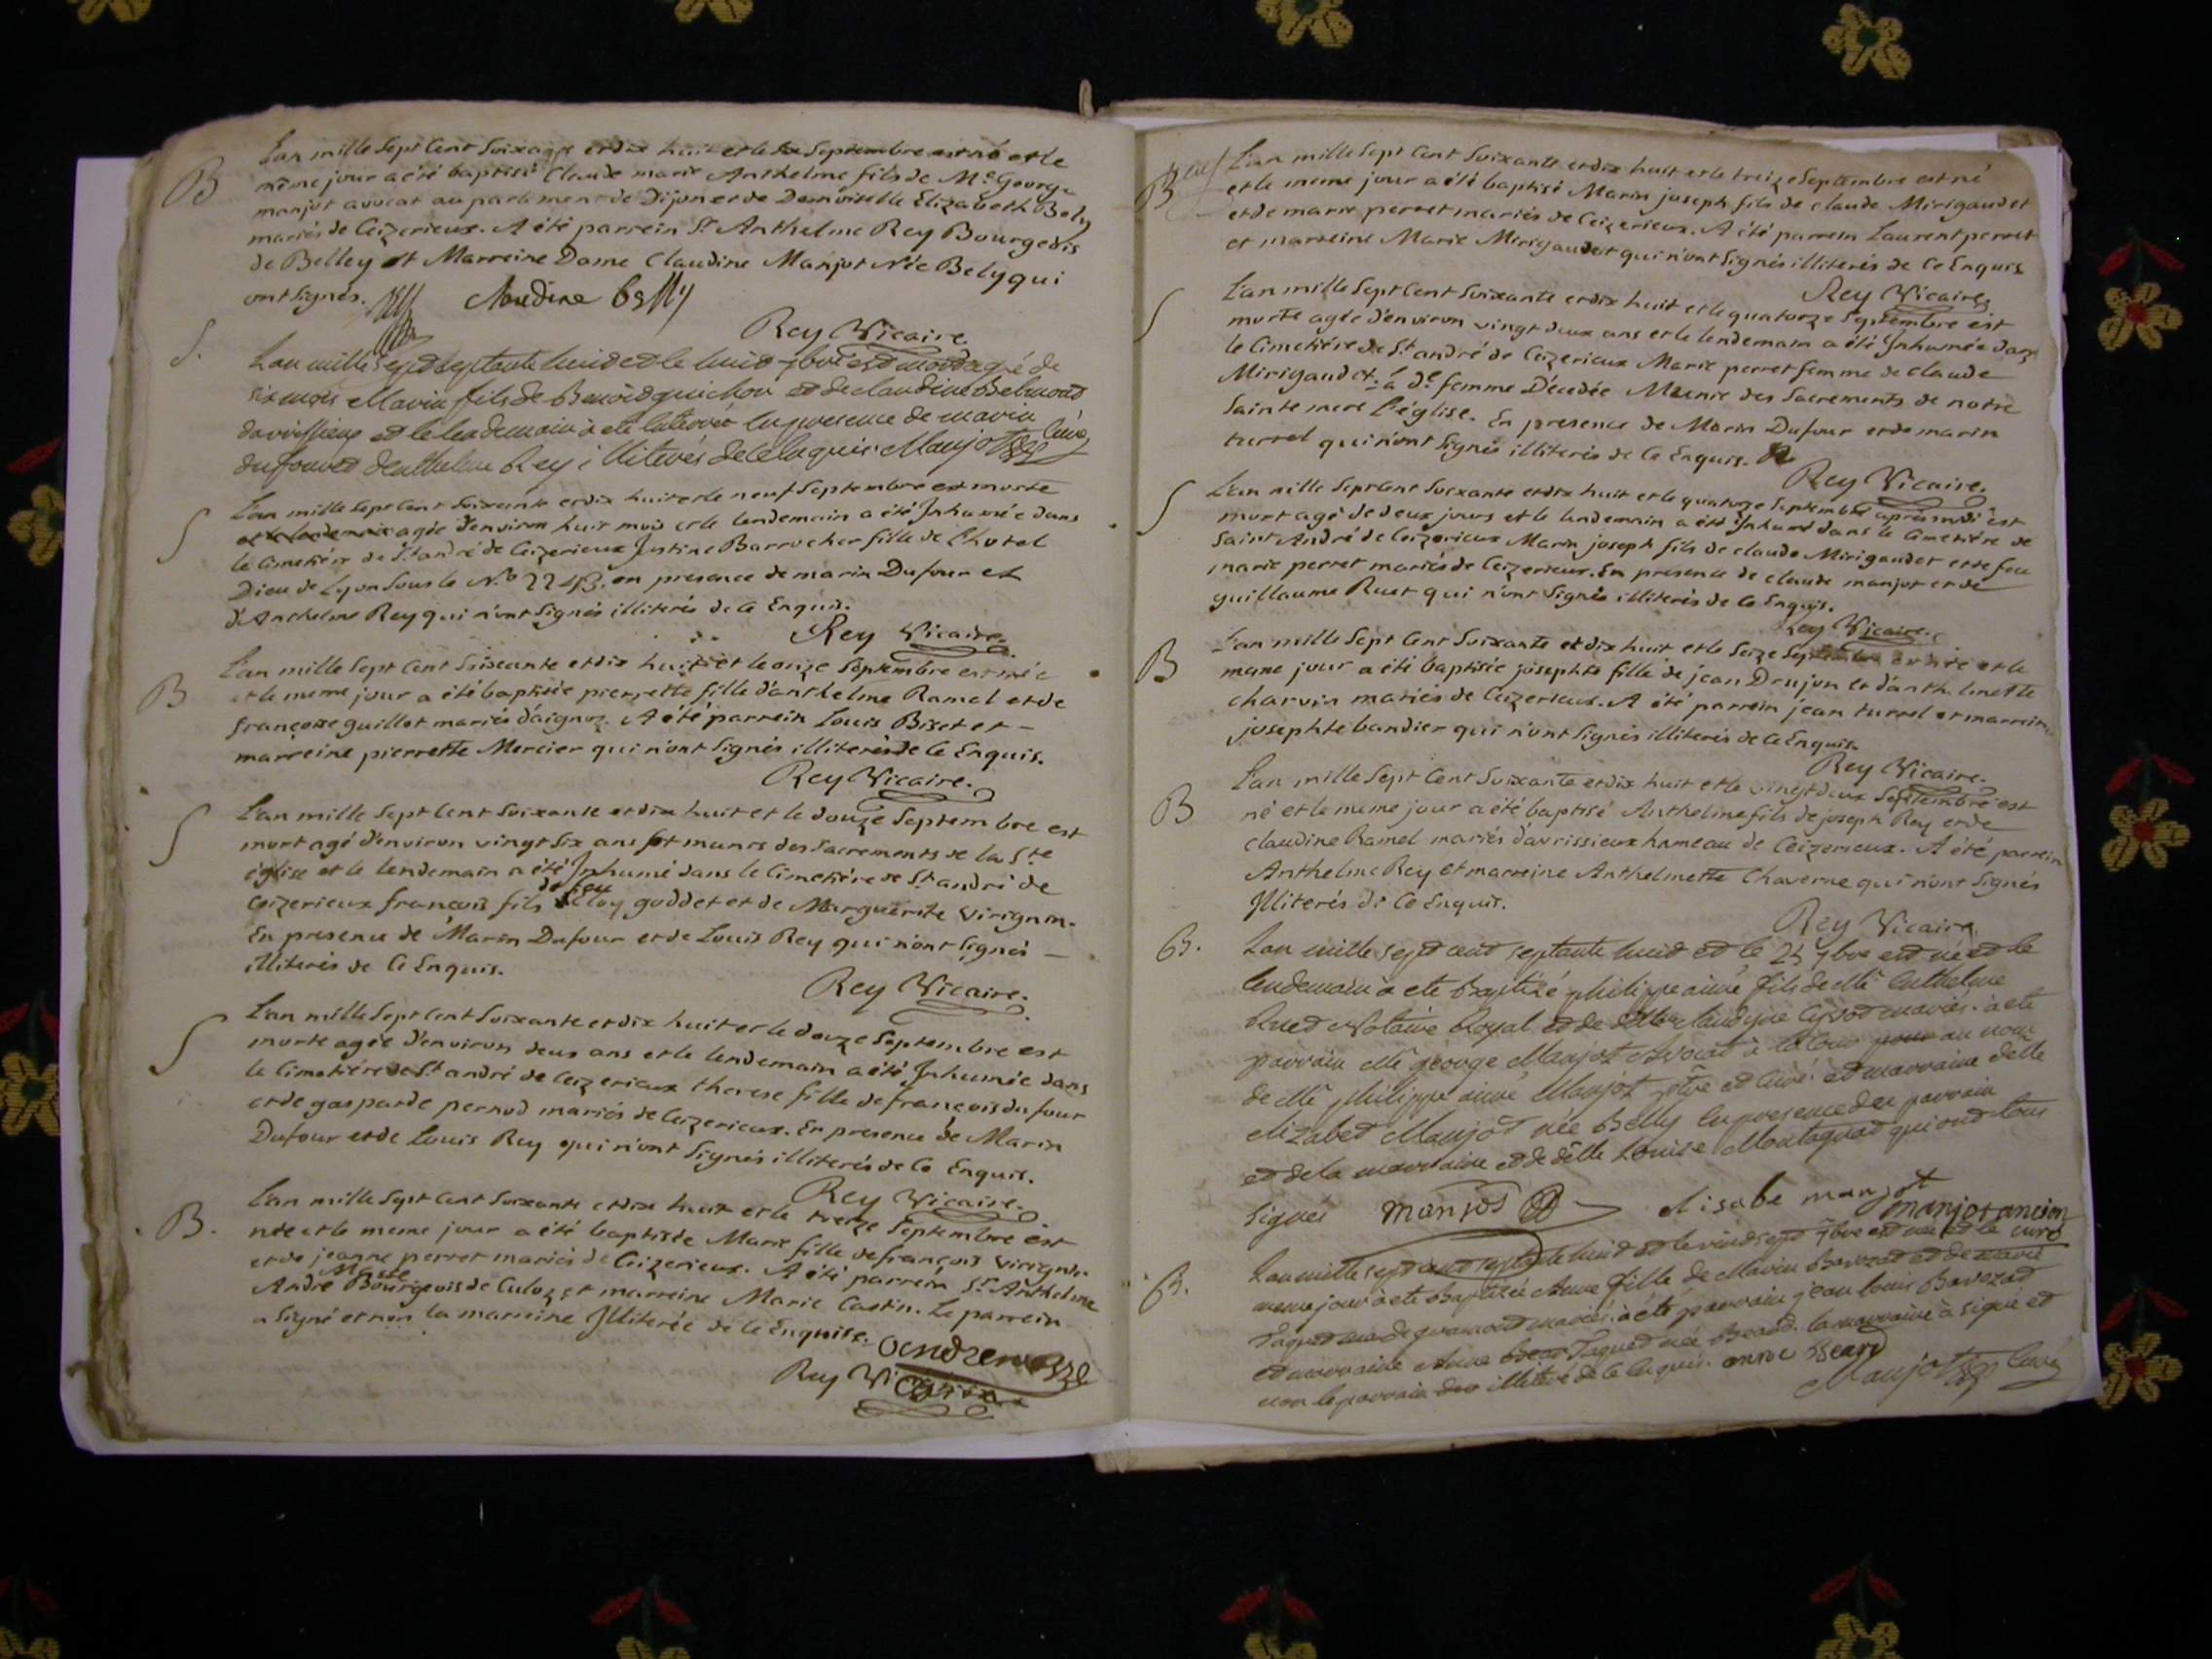 B
L'an mille Sept Cent Soixante et dix huit et le Six Septembre est né et le
même jour a été baptisé Claude marie Anthelme fils de Me George
manjot avocat au parlement de Dijon et de Demoiselle Elizabeth Bely
mariés de Ceizerieux. A été parrein Sr Anthelme Rey Bourgeois
de Belley et Marreine Dame Claudine Manjot Née Bely qui
ont Signés.
Claudine belly
Rey Vicaire
S.
L'an mille Sept septante huict et le huit 7bre est mort agé de
six mois Marin fils de Benoit guichon et de claudine Belmont
davrissieux et le lendemain a eté enterré en presence de marin
dufour et d'enthelme Rey illiterés de ce enquis Manjot curé
S
L'an mille Sept Cent Soixante et dix huit et le neuf Septembre est morte
agée d'environ huit mois et le lendemain a été Inhumée dans
le Cimetière de St andré de Ceizerieux Justine Barrocher fille de l'hotel
Dieu de Lyon Sous le No 2243. en presence de marin Dufour et
d'Anthelme Rey qui n'ont Signés illiterés de Ce Enquis.
Rey Vicaire
B
L'an mille Sept Cent Soixante et dix huit et le onze Septembre est née
et le meme jour a été baptisée pierrette fille d'anthelme Ramel et de
françoise guillot mariés d'aignoz. A été parrein Louis Biset et –
marreine pierrette Mercier qui n'ont Signés illiterés de Ce Enquis.
Rey Vicaire.
S
L'an mille Sept Cent Soixante et dix huit et le douze Septembre est
mort agé d'environ vingt Six ans et munis des Sacrements de la Ste
église et le lendemain a été Inhumé dans le Cimetière de St andré de
Ceizerieux françois fils de feu Eloy goddet et de Marguerite Virignin.
En presence de Marin Dufour et de Louis Rey qui n'ont Signés –
illiterés de Ce Enquis.
Rey Vicaire.
S
L'an mille Sept Cent Soixante et dix huit et le douze Septembre est
morte agée d'environ deux ans et le lendemain a été Inhumée dans
le Cimetière de St andré de Ceizerieux therese fille de françois dufour
et de gasparde pernod mariés de Ceizerieux. En presence de Marin
Dufour et de Louis Rey qui n'ont Signés illiterés de Ce Enquis.
Rey Vicaire.
B.
L'an mille Sept Cent Soixante et dix huit et le treize Septembre est
née et le meme jour a été baptisée Marie fille de françois virignin
et de jeanne perret mariés de Ceizerieux. A été parrein Sr Anthelme
André Masse Bourgeois de Culoz et marreine Marie Castin. Le parrein
a Signé et non la marreine Illiterée de Ce Enquise.
Rey Vicaire
B
L'an mille Sept Cent Soixante et dix huit et le treize Septembre est né
et le meme jour a été baptisé Marin joseph fils de claude Mirigaudet
et de marie perret mariés de Ceizerieux. A été parrein Laurent perret
et marreine Marie Mirigaudet qui n'ont Signés illiterés de Ce Enquis
Rey Vicaire.
S
L'an mille Sept Cent Soixante et dix huit et le quatorze Septembre est
morte agée d'environ vingt deux ans et le lendemain a été Inhumée dans
le Cimetière de St andré de Ceizerieux Marie perret femme de claude
Mirigaudet. la de femme Décedée Munie des Sacrements de notre
Sainte mere l'église. En presence de Marin Dufour et de marin
turrel qui n'ont Signés illiterés de Ce Enquis.
Rey Vicaire.
S
L'an mille Sept Cent Soixante et dix huit et le quatorze Septembre après midi est
mort agé de deux jours et le lendemain a été Inhumé dans le Cimetière de
Saint André de Ceizerieux Marin joseph fils de claude Mirigaudet et de feu
marie perret mariés de Ceizerieux. En presence de claude manjot et de
guillaume Ruet qui n'ont Signés illiterés de Ce Enquis.
Rey Vicaire.
B
L'an mille Sept Cent Soixante et dix huit et le Seize Septembre est née et le
meme jour a été baptisée josephte fille de jean Drujon et d'anthelmette
charvin mariés de Ceizerieux. A été parrein jean turrel et marreine
josephte bandier qui n'ont Signés illiterés de Ce Enquis.
Rey Vicaire.
B
L'an mille Sept Cent Soixante et dix huit et le vingt deux Septembre est
né et le meme jour a été baptisé Anthelme fils de joseph Rey et de
claudine Ramel mariés d'avrissieux hameau de Ceizerieux. A été parrein
Anthelme Rey et marreine Anthelmette Chaverne qui n'ont Signés
Illiterés de Ce Enquis.
Rey Vicaire
B.
L'an mille sept cent septante huit et le 25 7bre est né et le
lendemain a eté Baptizé philippe aimé fils de Me Enthelme
Ruet Notaire Royal et de delle claudine mariés. a eté
parrain Me george Manjot Avocat a la Cour au nom
de Me Philippe aimé Manjot ptre et curé et marraine delle
elizabet Manjot née Belly en presence du parrain
et de la marraine et de delle Louise Montagnat qui ont tous
signés manjot elisabe manjot
manjot ancien curé
B.
L'an mille sept cent septante huit et le vint sept 7bre est née et le
meme jour a eté Baptizée Anne fille de Marin Bavozat et de marie
mariés. a eté parrain jean louis Bavozat
et marraine Anne Taquet née Beard. la marraine a signé et
non le parrain illiteré de ce enquis. anne Beard
Manjot curé